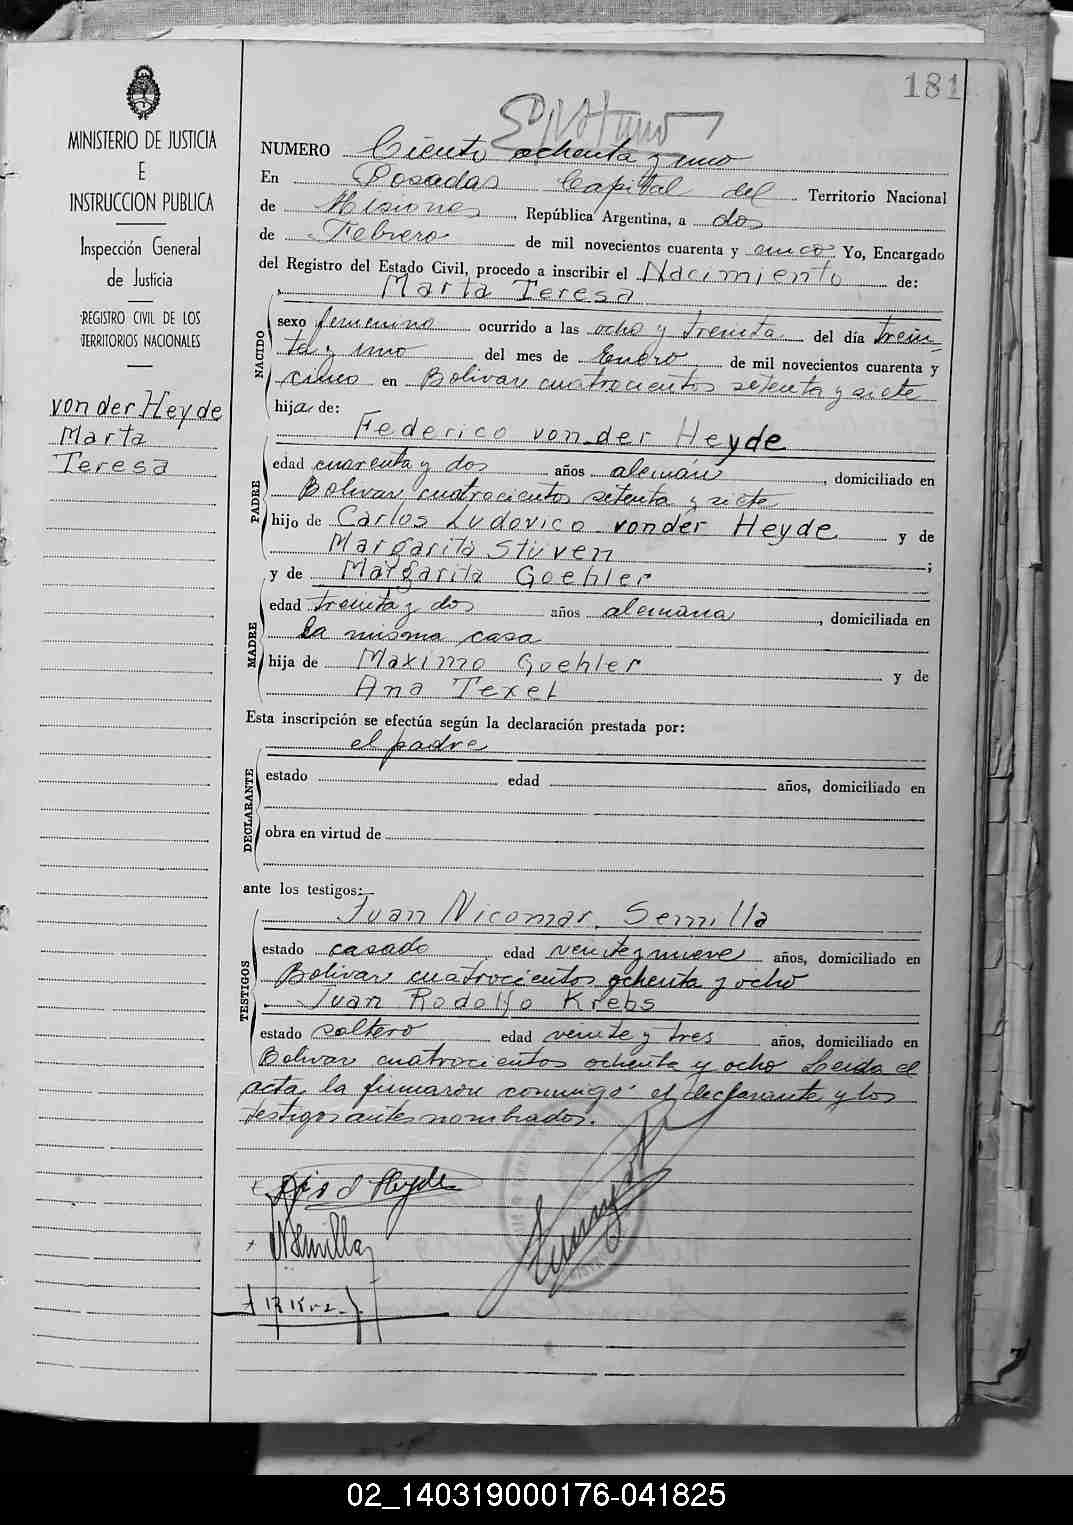 181
MINISTERIO DE JUSTICIA
E
INSTRUCCION PUBLICA
Inspección General
de Justicia
REGISTRO CIVIL DE LOS
TERRITORIOS NACIONALES
von der Heyde
Marta
Teresa
NUMERO Ciento ochenta y uno
En Posadas Capital del Territorio Nacional
de Misiones, República Argentina, a dos
de Febrero de mil novecientos cuarenta y cinco Yo, Encargado
del Registro del Estado Civil, procedo a inscribir el Nacimiento de:
Marta Teresa
NACIDO
sexo femenino ocurrido a las ocho y treinta del día trein-
ta y uno del mes de Enero de mil novecientos cuarenta y
cinco en Bolivar cuatrocientos setenta y siete
hija de:
Federico von der Heyde
PADRE
edad cuarenta y dos años alemán, domiciliado en
Bolivar cuatrocientos setenta y siete
hijo de Carlos Ludovico von der Heyde y de
Margarita Stüven;
y de Margarita Goehler
MADRE
edad treinta y dos años alemana, domiciliada en
la misma casa
hija de Maximo Goehler y de
Ana Texet
Esta inscripción se efectúa según la declaración prestada por:
el padre
DECLARANTE
estado edad años, domiciliado en
obra en virtud de
ante los testigos:
Juan Nicomar Semilla
TESTIGOS
estado casado edad veinte y nueve años, domiciliado en
Bolivar cuatrocientos ochenta y ocho
Juan Rodolfo Krebs
estado soltero edad veinte y tres años, domiciliado en
Bolivar cuatrocientos ochenta y ocho Leida el
acta, la firmaron conmigo el declarante y los
testigos antes nombrados.
Heyde
NSemilla
02_140319000176-041825